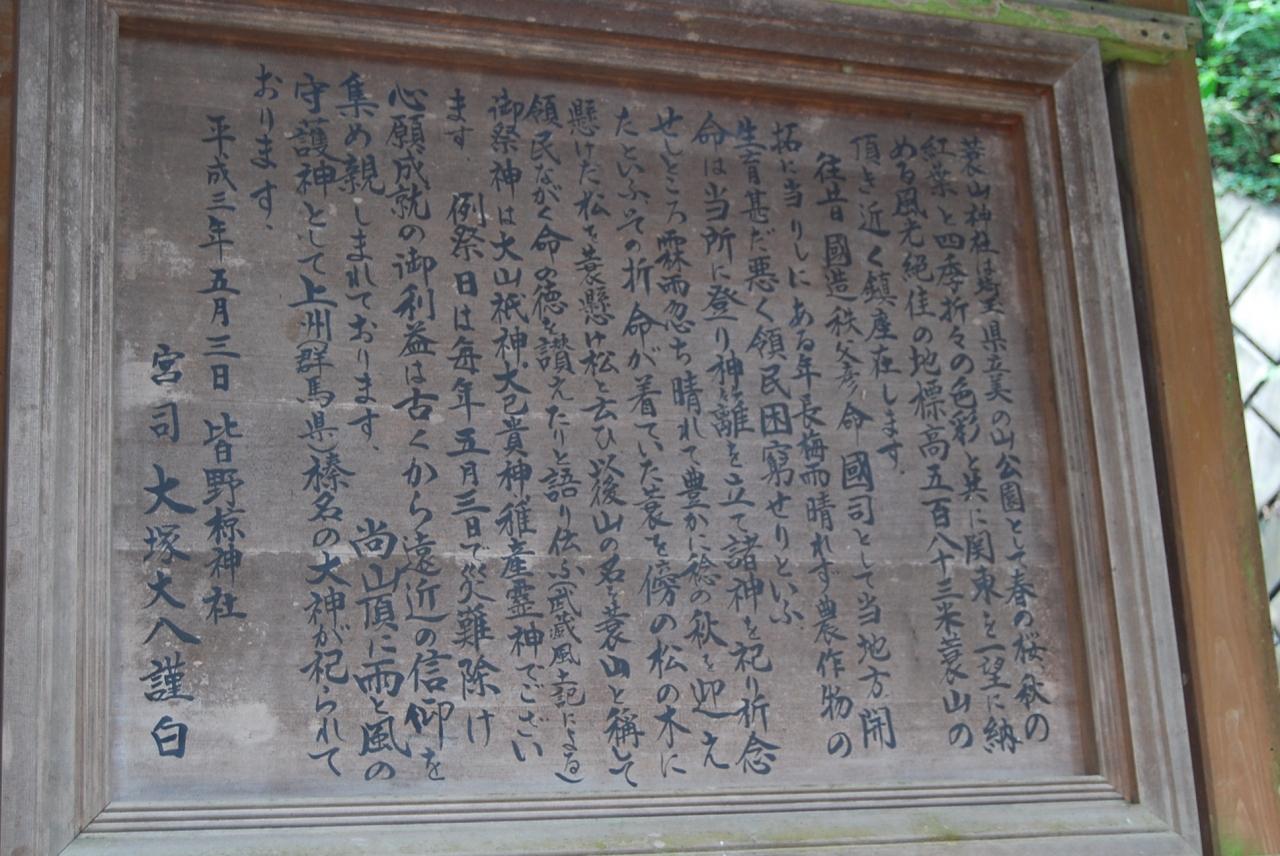 蓑山神社は埼玉県立美の山公園として春の桜、秋の
紅葉と四季折々の色彩と共に関東を一望に納
める風光絶佳の地標高五百八十三米蓑山の
頂き近く鎮座在します。
往昔國造秩父彦命國司として当地方開
拓に当りしにある年長梅雨晴れず農作物の
生育甚だ悪く領民困窮せりといふ
命は当所に登り神籬を立て諸神を祀り祈念
せしところ霖雨忽ち晴れて豊かに稔の秋を迎え
たといふその折命が着ていた蓑を傍の松の木に
懸けた松を蓑懸け松と云ひ以後山の名を蓑山と稱して
領民ながく命の徳を讃えたりと語り伝ふ(武蔵風土記による)
御祭神は大山祇神、大己貴神、稚産霊神でござい
ます。例祭日は毎年五月三日で災難除け
心願成就の御利益は古くから遠近の信仰を
集め親しまれております、尚山頂に雨と風の
守護神として上州(群馬県)榛名の大神が祀られて
おります、
平成三年五月三日 皆野椋神社
宮司 大塚大八 謹白